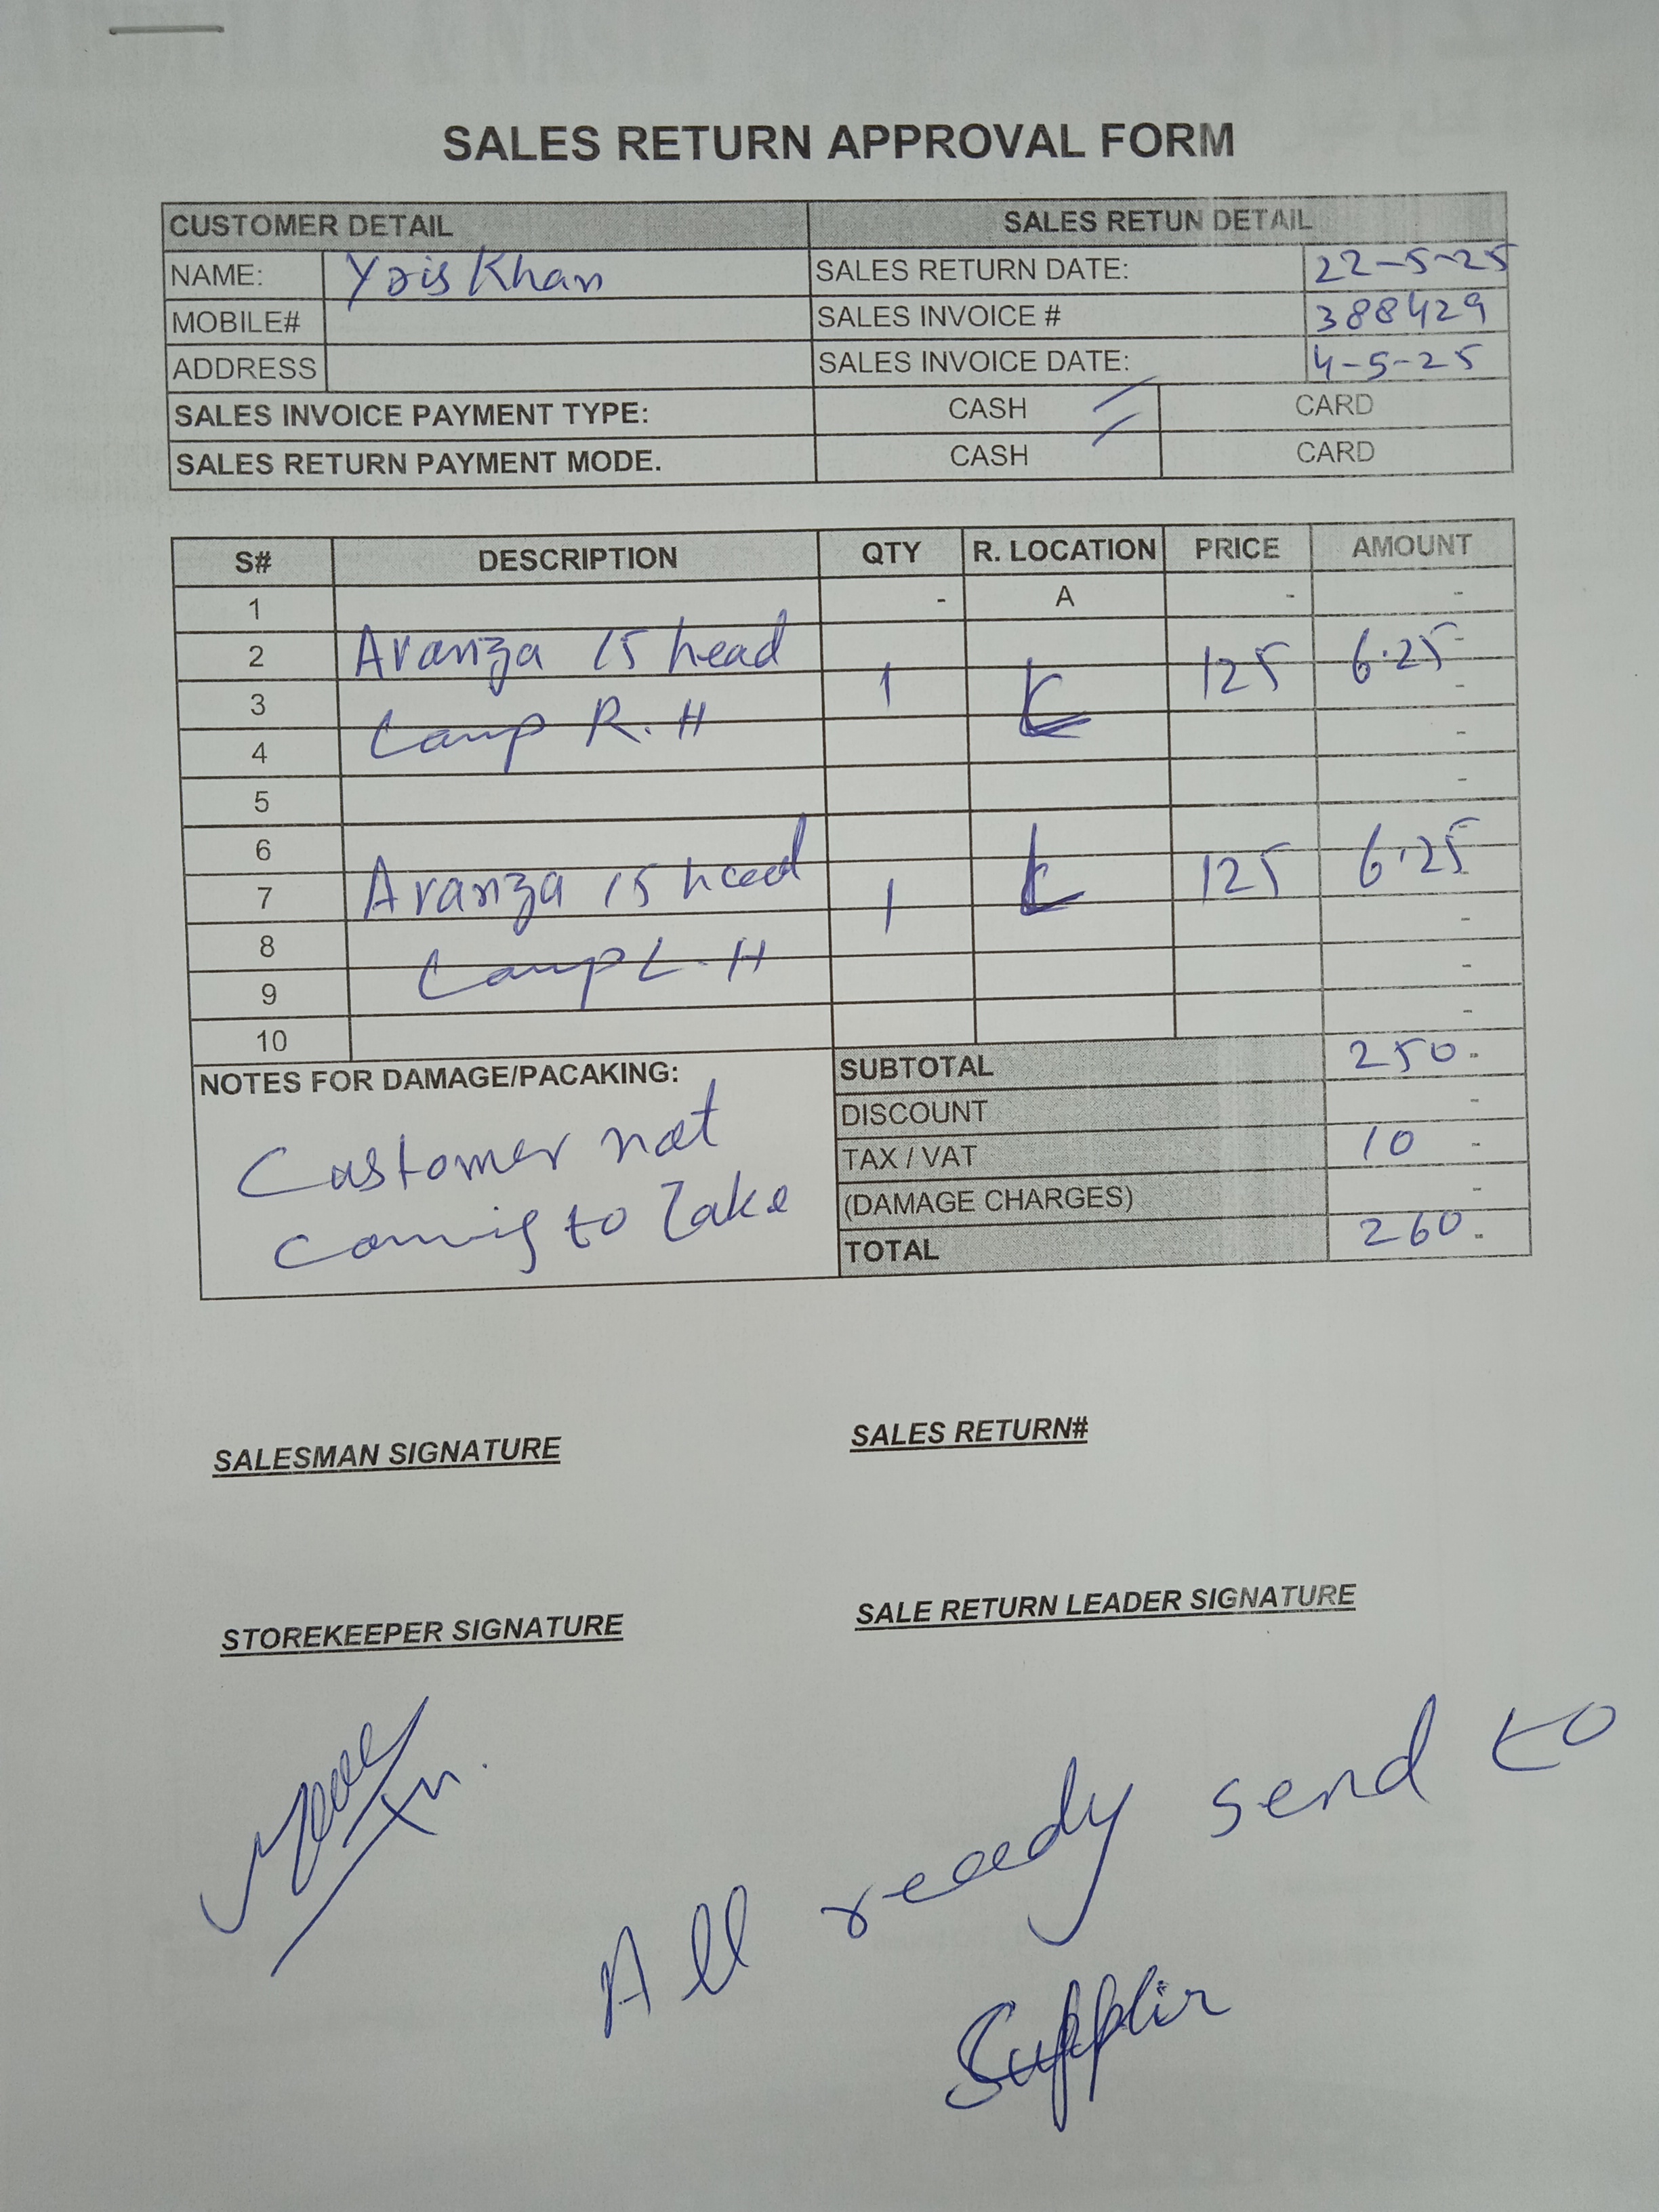 SALES RETURN APPROVAL FORM
CUSTOMER DETAIL SALES RETUN DETAIL
NAME: Khan SALES RETURN DATE: 22-5-25
MOBILE# SALES INVOICE # 388429
ADDRESS SALES INVOICE DATE: 4-5-25
SALES INVOICE PAYMENT TYPE: CASH CARD
SALES RETURN PAYMENT MODE. CASH CARD
S# DESCRIPTION QTY R. LOCATION PRICE AMOUNT
1 - A - -
2 Avanza 15 head 1 125 6.25 -
3 Lamp R.H -
4 -
5 -
6 -
7 Avanza 15 head 1 125 6.25 -
8 Lamp L.H -
9 -
10 -
NOTES FOR DAMAGE/PACAKING:
Customer not
coming to Take
SUBTOTAL 250.-
DISCOUNT -
TAX / VAT 10 -
(DAMAGE CHARGES) -
TOTAL 260.-
SALESMAN SIGNATURE SALES RETURN#
STOREKEEPER SIGNATURE SALE RETURN LEADER SIGNATURE
All ready send to